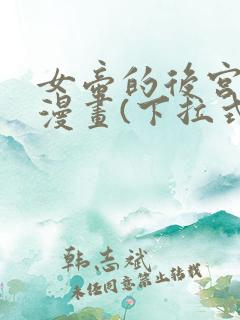 女帝的後宮
漫畫(下拉式
韩志斌
未经同意禁止转载